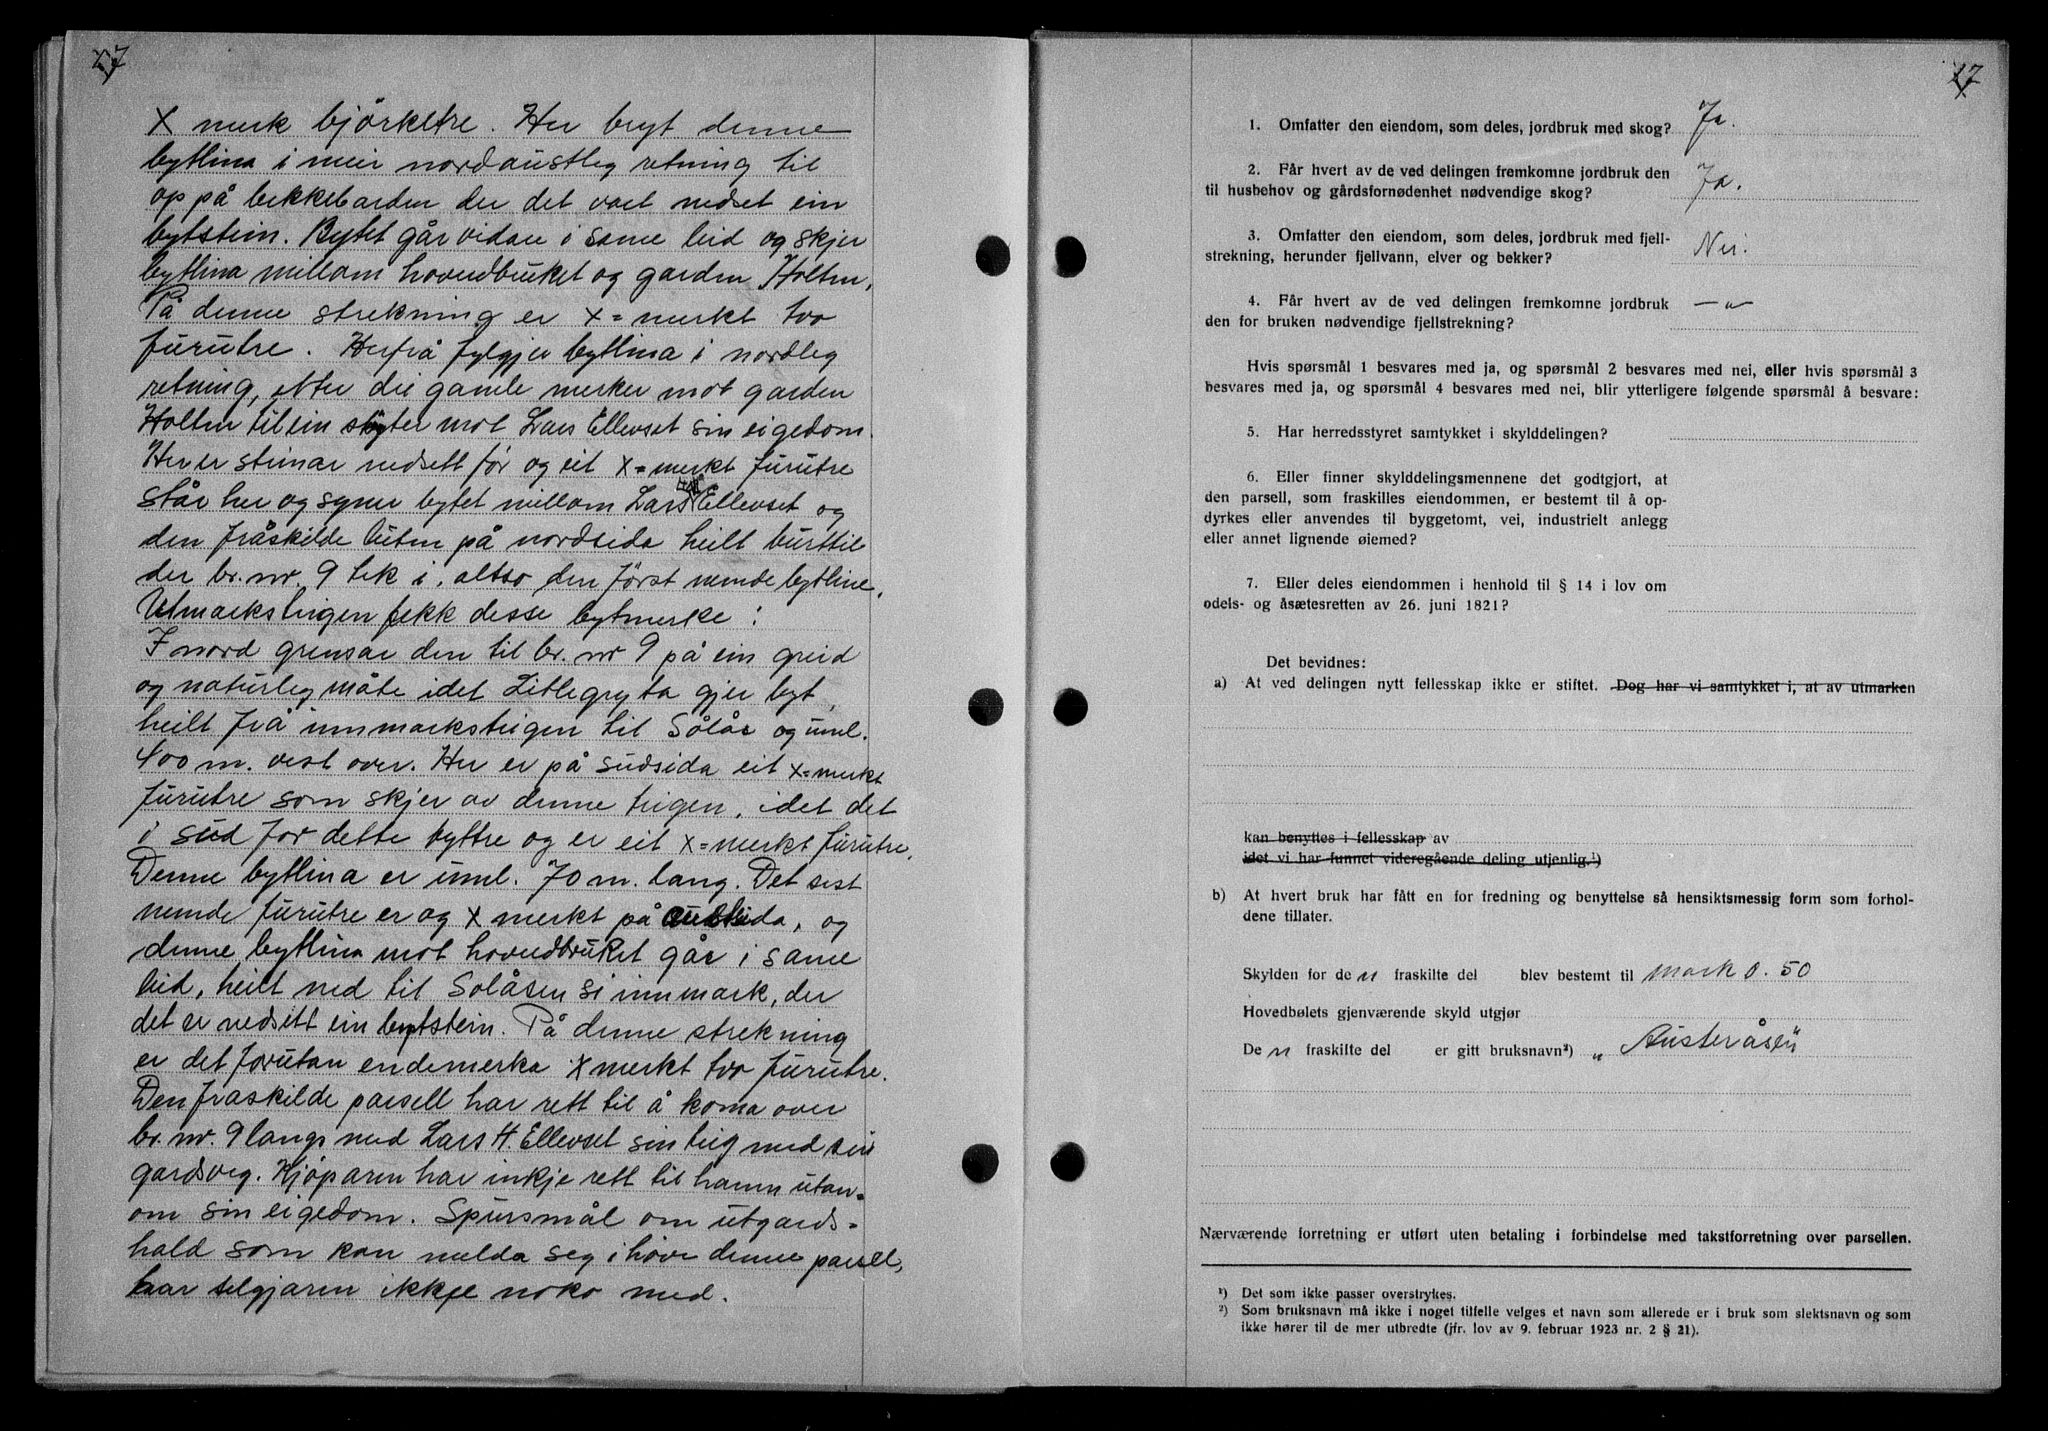 27
X merk björketre. Her bryt denne
bytlina i meir nordaustleg retning til
op på bekkebarden der det vart nedset ein
bytstein. Bytet går vidare i same leid og skjer
bytlina millom hovudbruket og garden Holten.
På denne strekning er X=merkt tvo
furutre. Herfrå fylgjer bytlina i nordleg
retning, etter dei gamle merker mot garden
Holten til ein støyter mot Lars Ellevset sin eigedom.
Her er steinar nedsett før og eit X=merkt furutre
står her og syner bytet millom Lars H. Ellevset og
den fråskilde luten på nordsida heilt burttil
der br. nr. 9 tek i, altso den först nemde bytline.
Utmarksteigen fekk desse bytmerke:
I nord grensar den til br. nr 9 på ein greid
og naturleg måte idet Litlegryta gjer byt,
heilt frå innmarksteigen til Sølås og uml.
400 m. vest over. Her er på sudsida eit X=merkt
furutre som skjer av denne teigen, idet det
i sud for dette byttre og er eit X=merkt furutre.
Denne bytlina er uml. 70 m. lang. Det sist
nemde furutre er og X merkt på austsida, og
denne bytlina mot hovudbruket går i same
leid, heilt ned til Solåsen si innmark, der
det er nedsett ein bytstein. På denne strekning
er det forutan endemerka X merkt tvo furutre.
Den fraskilde parsell har rett til å koma over
br. nr. 9 langs med Lars H. Ellevset sin teig med sin
gardsveg. Kjøparen har inkje rett til hamn utan=
om sin eigedom. Spursmål om utgards=
hald som kan melda seg i høve denne parsell,
har seljaren ikkje noko med.
17
1. Omfatter den eiendom, som deles, jordbruk med skog? Ja.
2. Får hvert av de ved delingen fremkomne jordbruk den
til husbehov og gårdsfornødenhet nødvendige skog? Ja.
3. Omfatter den eiendom, som deles, jordbruk med fjell-
strekning, herunder fjellvann, elver og bekker? Nei.
4. Får hvert av de ved delingen fremkomne jordbruk
den for bruken nødvendige fjellstrekning? — " —
Hvis spørsmål 1 besvares med ja, og spørsmål 2 besvares med nei, eller hvis spørsmål 3
besvares med ja, og spørsmål 4 besvares med nei, blir ytterligere følgende spørsmål å besvare:
5. Har herredsstyret samtykket i skylddelingen?
6. Eller finner skylddelingsmennene det godtgjort, at
den parsell, som fraskilles eiendommen, er bestemt til å op-
dyrkes eller anvendes til byggetomt, vei, industrielt anlegg
eller annet lignende øiemed?
7. Eller deles eiendommen i henhold til § 14 i lov om
odels- og åsætesretten av 26. juni 1821?
Det bevidnes:
a) At ved delingen nytt fellesskap ikke er stiftet. Dog har vi samtykket i, at av utmarken
kan benyttes i fellesskap av
idet vi har funnet videregående deling utjenlig.¹)
b) At hvert bruk har fått en for fredning og benyttelse så hensiktsmessig form som forhol-
dene tillater.
Skylden for de n fraskilte del blev bestemt til mark 0.50
Hovedbølets gjenværende skyld utgjør
De n fraskilte del er gitt bruksnavn²) „Austeråsen"
Nærværende forretning er utført uten betaling i forbindelse med takstforretning over parsellen.
¹) Det som ikke passer overstrykes.
²) Som bruksnavn må ikke i noget tilfelle velges et navn som allerede er i bruk som slektsnavn og som
ikke hører til de mer utbredte (jfr. lov av 9. februar 1923 nr. 2 § 21).